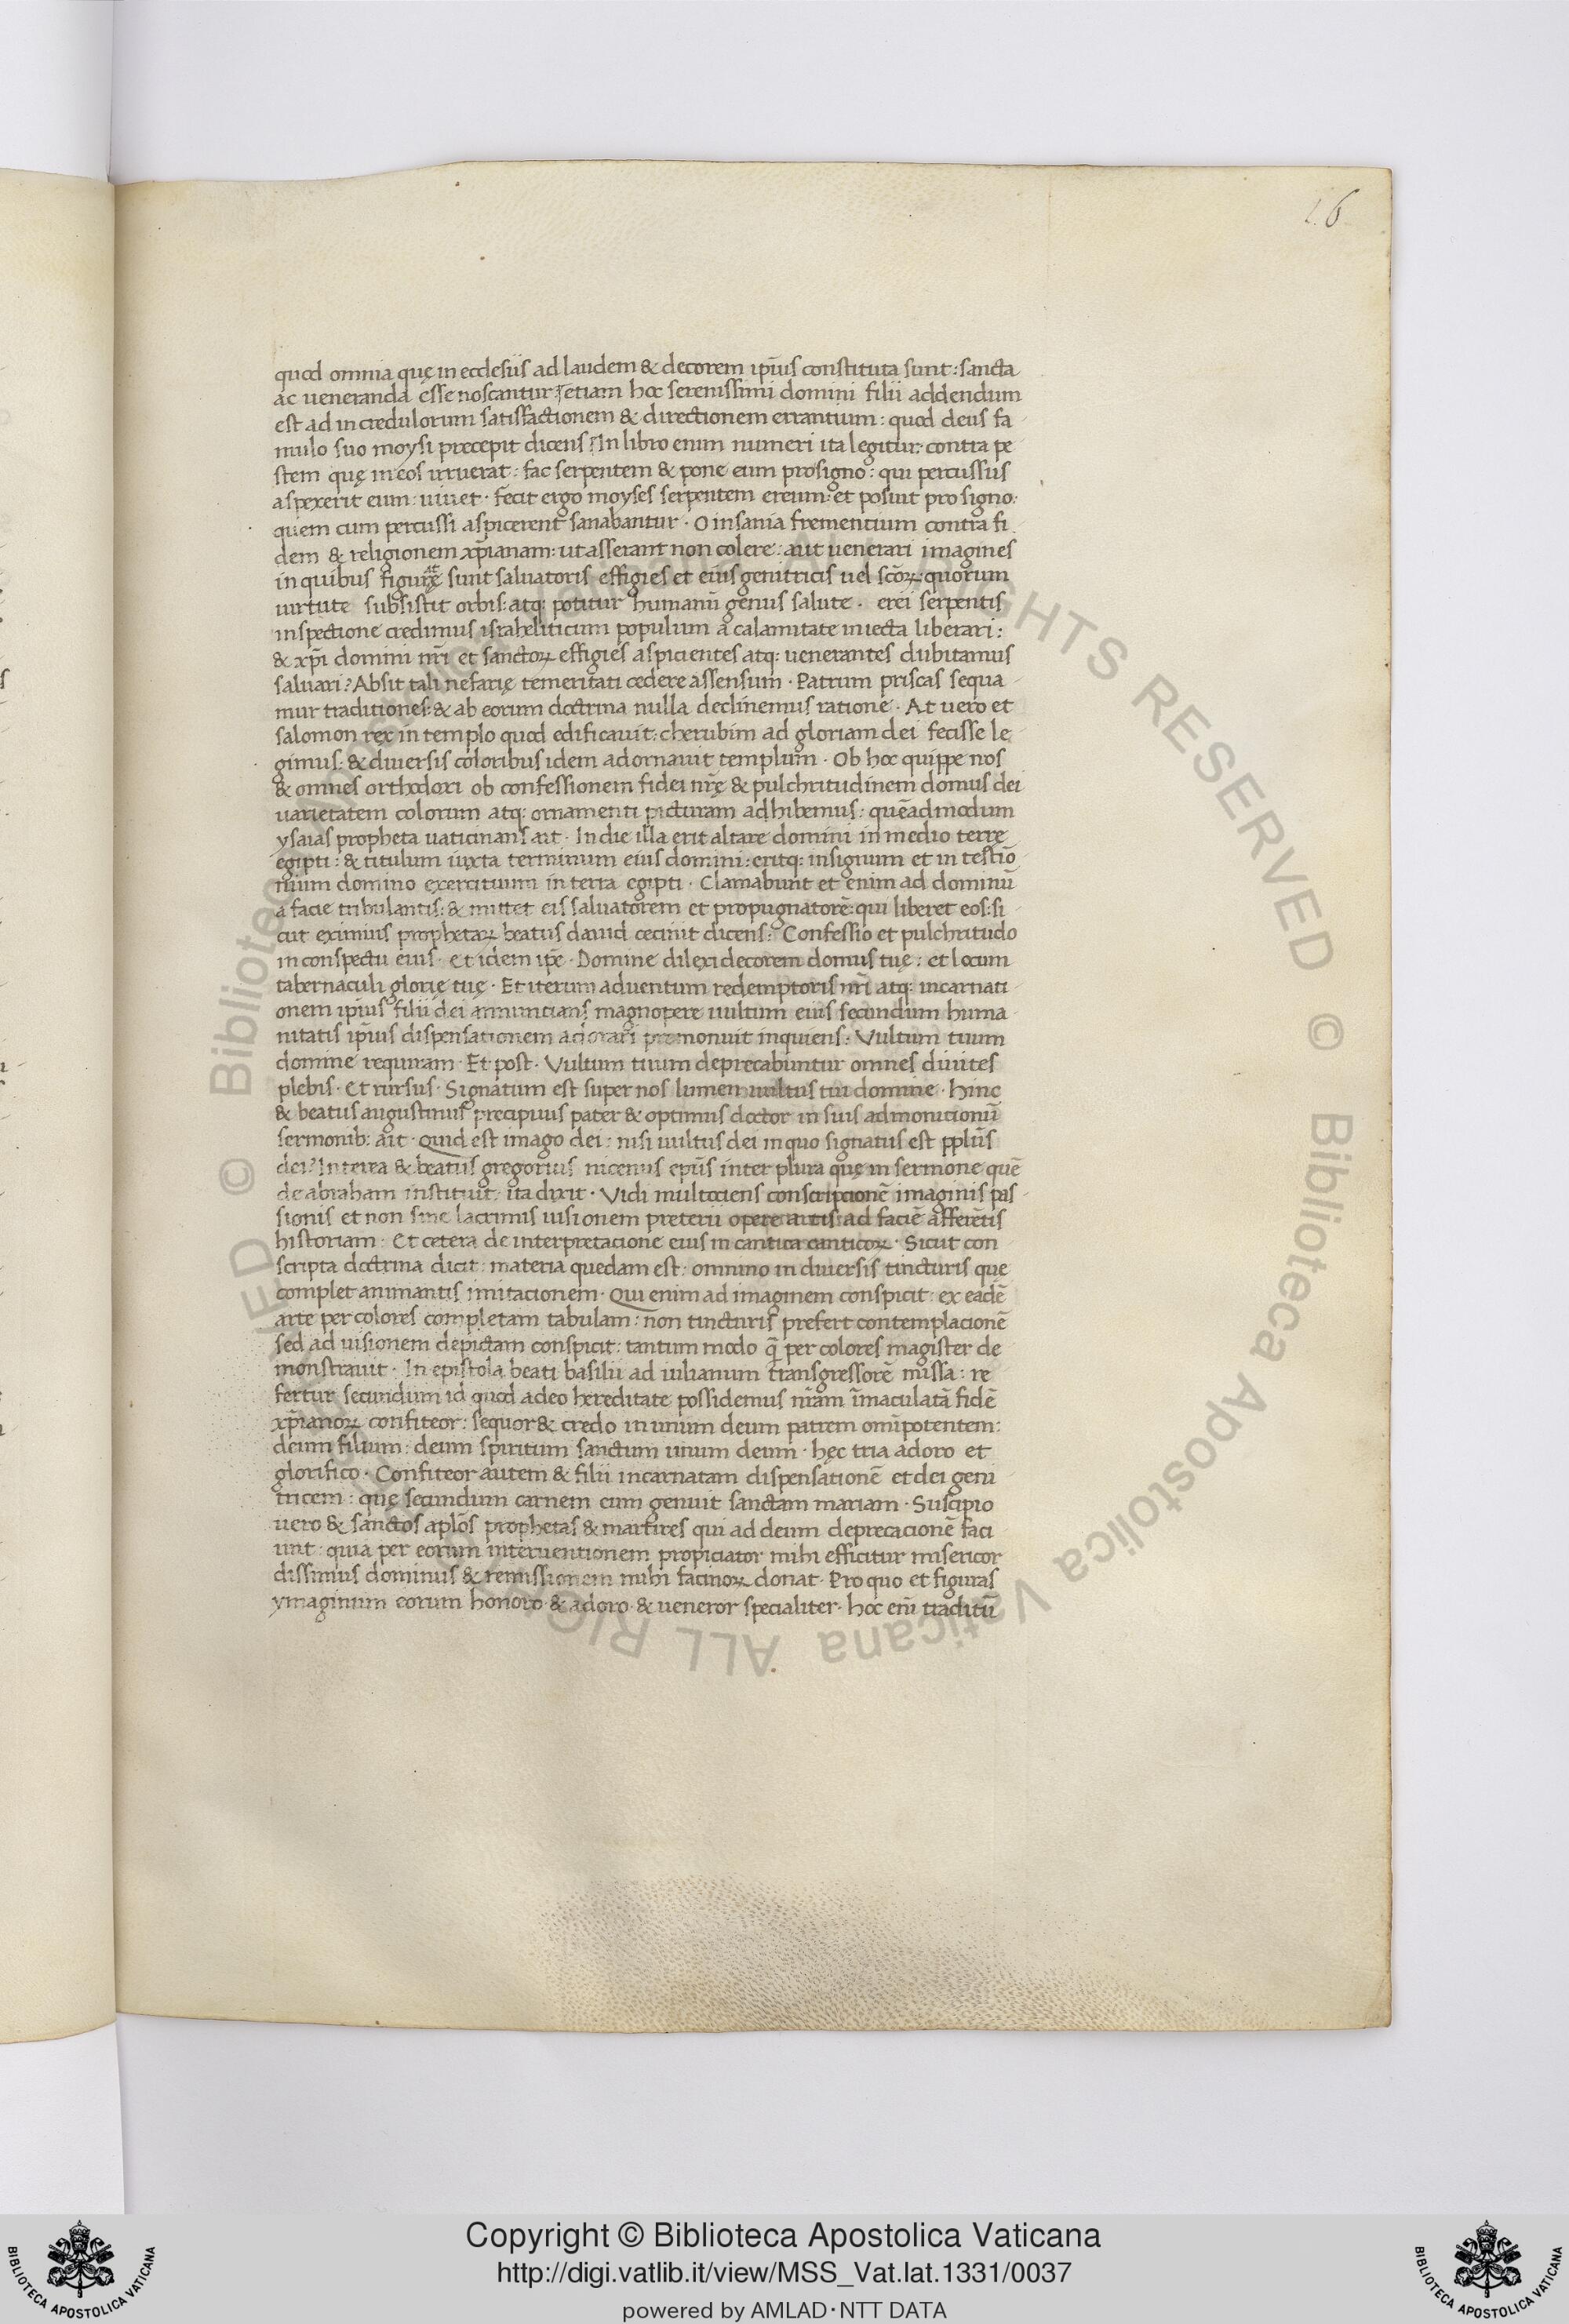 26
quod omnia quę in ecclesiis ad laudem & decorem ip̄ius constituta sunt: sancta
ac ueneranda esse noscantur: etiam hoc serenissimi domini filii addendum
est ad incredulorum satisfactionem & directionem errantium: quod deus fa
mulo suo moysi precepit dicens? In libro enim numeri ita legitur: contra pe
stem quę in eos irruerat: fac serpentem & pone eum pro signo: qui percussus
aspexerit eum: uiuet · fecit ergo moyses serpentem ereum: et posuit pro signo:
quem cum percussi aspicerent sanabantur · O insania frementium contra fi
dem & religionem xp̄ianam: ut asserant non colere: aut uenerari imagines
in quibus figurę sunt saluatoris effigies et eius genitricis uel sc̄oꝝ: quorum
uirtute subsistit orbis: atq: potitur humanū genus salute · erei serpentis
inspectione credimus israheliticum populum a calamitate iniecta liberari:
& xp̄i domini nr̄i et sanctoꝝ effigies aspicientes atq: uenerantes dubitamus
saluari? Absit tali nefarię temeritati cedere assensum · Patrum priscas sequa
mur traditiones: & ab eorum doctrina nulla declinemus ratione · At uero et
salomon rex in templo quod edificauit: cherubim ad gloriam dei fecisse le
gimus: & diuersis coloribus idem adornauit templum · Ob hoc quippe nos
& omnes orthodoxi ob confessionem fidei nr̄ę & pulchritudinem domus dei
uarietatem colorum atq: ornamenti picturam adhibemus: quēadmodum
ysaias propheta uaticinans ait · In die illa erit altare domini in medio terrę
egipti: & titulum iuxta terminum eius domini: eritq: in signum et in testīo
nium domino exercituum in terra egipti · Clamabunt et enim ad dominū
a facie tribulantis: & mittet eis saluatorem et propugnatorē: qui liberet eos: si
cut eximius prophetaꝝ beatus dauid cecinit dicens: Confessio et pulchritudo
in conspectu eius · et idem ip̄e · Domine dilexi decorem domus tuę: et locum
tabernaculi glorię tuę · Et iterum aduentum redemptoris nr̄i atq: incarnati
onem ip̄ius filii dei annuncians magnopere uultum eius secundum huma
nitatis ip̄ius dispensationem adorari premonuit inquiens: Vultum tuum
domine requiram · Et post · Vultum tuum deprecabuntur omnes diuites
plebis · Et rursus · Signatum est super nos lumen uultus tui domine · hinc
& beatus augustinus precipuus pater & optimus doctor in suis admonicionū
sermonib: ait · Quid est imago dei: nisi uultus dei in quo signatus est ppl̄us
dei? Interea & beatus gregorius nicenus ep̄us inter plura quę in sermone quē
de abraham instituit: ita dixit · Vidi multociens conscripcionē imaginis pas
sionis et non sine lacrimis uisionem preterii opere artis ad faciē afferētis
historiam: Et cetera de interpretacione eius in cantica canticoꝝ · Sicut con
scripta doctrina dicit: materia quedam est: omnino in diuersis tincturis que
complet animantis imitacionem · Qui enim ad imaginem conspicit: ex eadē
arte per colores completam tabulam: non tincturis prefert contemplacionē
sed ad uisionem depictam conspicit: tantum modo q̄ per colores magister de
monstrauit · In epistola beati basilii ad iulianum transgressorē missa: re
fertur secundum id quod a deo hereditate possidemus nr̄am īmaculatā fidē
xp̄ianoꝝ confiteor: sequor & credo in unum deum patrem om̄ipotentem:
deum filium: deum spiritum sanctum unum deum · hęc tria adoro et
glorifico · Confiteor autem & filii incarnatam dispensationē et dei geni
tricem: quę secundum carnem eum genuit sanctam mariam · Suscipio
uero & sanctos apl̄os prophetas & martires qui ad deum deprecacionē faci
unt: quia per eorum interuentionem propiciator mihi efficitur misericor
dissimus dominus & remissionem mihi facinoꝝ donat · Pro quo et figuras
ymaginum eorum honoro & adoro & ueneror specialiter · hoc enī traditū
Copyright © Biblioteca Apostolica Vaticana
http://digi.vatlib.it/view/MSS_Vat.lat.1331/0037
powered by AMLAD·NTT DATA